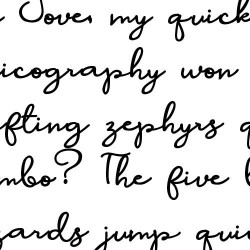 Jove, my quick
icography won
fting zephyrs q
mbo? The five b
zards jump qui